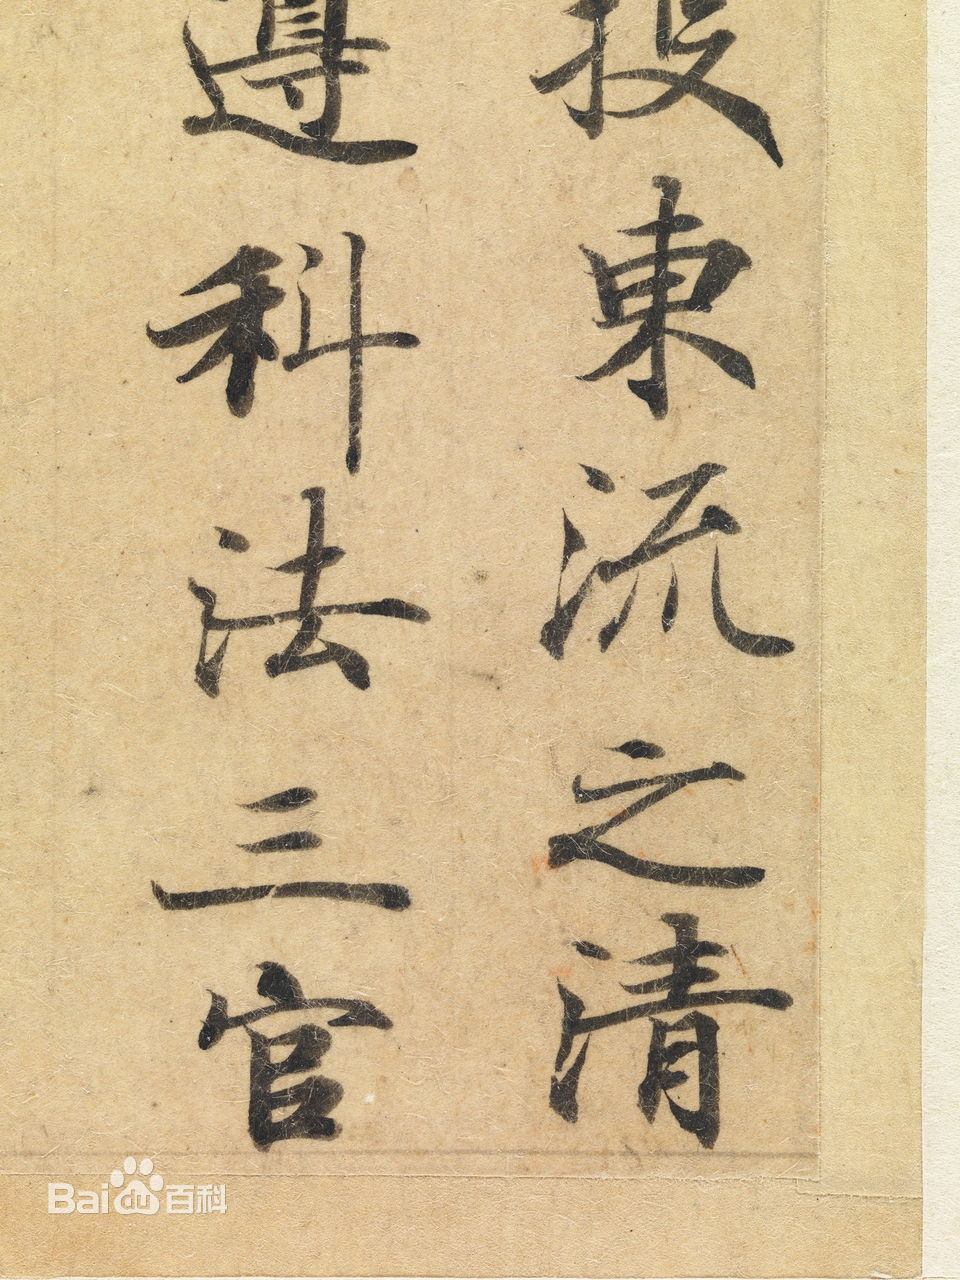 投東流之清
遵科法三官
Baidu百科